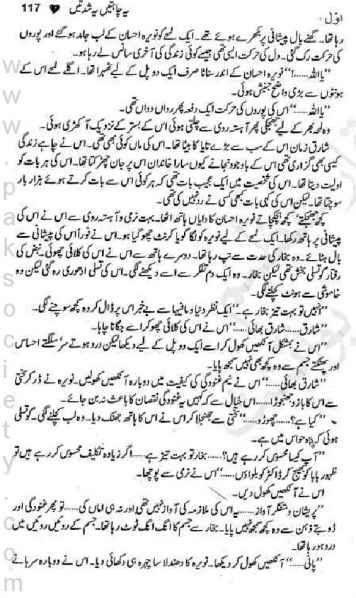 اوّل
یہ چاہتیں یہ شدتیں ♥ 117
رہا تھا۔ گھنے بال پیشانی پر بکھرے ہوئے تھے۔ ایک لمحے کو نویرہ احسان کے لب جامد ہو گئے اور پوروں
کی حرکت رک گئی۔ دل کی حرکت ایسی تھی جیسے کوئی زندگی کی آخری سانس لے رہا ہو۔
”یا اللہ......!“ نویرہ احسان کے اندر سناٹا صرف ایک دو پل کے لیے ٹھہرا تھا۔ اگلے لمحے اس کے
ہونٹوں سے بڑی واضح جنبش ہوئی۔
”یا اللہ......“ اس کی پوروں کی حرکت ایک دفعہ پھر رواں دواں تھی۔
وہ لمحہ بھر کے لیے جھجکی پھر آہستہ روی سے چلتی ہوئی اس کے بستر کے نزدیک آ کھڑی ہوئی۔
شارق زمان اس کے سب سے بڑے تایا کا بیٹا تھا۔ اس کی ماں کوئی بھی تھی۔ اس نے چاہے زندگی
کیسی بھی گزاری تھی اس کے باوجود نجانے کیوں سارا خاندان اس پر جان چھڑکتا تھا۔ اس کی ہر بات کو
اولیت دیتا تھا۔ اس کی شخصیت میں ایک عجیب بات تھی کہ ہر کوئی اس سے بات کرتے ہوئے ہزار بار
سوچتا تھا۔ لیکن اس کی کسی بات کو کبھی کسی نے رد نہیں کی تھی۔
کچھ جھجکتے کچھ ہچکچاتے نویرہ احسان کا دایاں ہاتھ اٹھا۔ بہت نرمی و آہستہ روی سے اس نے اس کی
پیشانی پر ہاتھ رکھا۔ ایک لمحے کے لیے نویرہ کو لگا گویا کرنٹ چھو گیا ہو۔ اس نے فوراً اس کی پیشانی سے
ہاتھ ہٹا لیا۔ وہ بخار کی حدت سے تپ رہا تھا۔ دوسرے ہاتھ سے اس نے اس کی کلائی چھوئی۔ نبض کی
رفتار گو تسلی بخش تھی لیکن بخار۔ وہ ایک دم تفکر سے اسے دیکھنے لگی۔ اس کی تسلی ادھوری رہ گئی لیکن وہ
خاموشی سے ہونٹ کچلنے لگی۔
”انہیں تو بہت تیز بخار ہے۔“ ایک نظر دنیا و مافیہا سے بے خبر اس پر ڈال کر وہ کچھ سوچنے لگی۔
”شارق۔ شارق بھائی......“ اس نے اس کی کلائی چھو کر اسے جگانا چاہا۔
اس نے بمشکل آنکھیں کھول کر اسے ایک دو پل کے لیے دیکھا لیکن درد ہوتے سر سلگتے احساس
اور پھنکتے جسم سے وہ کچھ بھی سمجھ نہیں پایا۔
”شارق بھائی......“ اس نے نیم غنودگی کی کیفیت میں دوبارہ آنکھیں کھولیں۔ نویرہ نے ذرا سختی
سے اس کا بازو جھنجوڑا...... اس خیال سے کہ کہیں یہ غنودگی نقصان کا باعث نہ بن جائے۔
”کیا ہے؟...... چھوڑو......“ سختی سے جھنجلا کر اس نے اس کا ہاتھ جھٹک دیا۔ وہ لب کچلنے لگی۔ گو تسلی
ہوئی کہ وہ حواس میں ہے۔
”آپ کیسا محسوس کر رہے ہیں؟...... بخار تو بہت تیز ہے...... اگر زیادہ تکلیف محسوس کر رہے ہیں تو
ظہور بابا کو بھیج کر ڈاکٹر کو بلواؤں......“ اس نے نرمی سے پوچھا۔
اس نے آنکھیں کھول دیں۔
پریشان و متفکر آواز...... یہ ملازمہ کی آواز نہیں تھی اور نہ ہی اماں کی...... تو پھر غنودگی اور
ڈوبتے ذہن سے وہ کچھ سمجھ نہیں پایا۔ بخار سے جسم کا انگ انگ ٹوٹ رہا تھا۔ جسم کے روئیں روئیں میں
درد ہو رہا تھا۔
”پانی......“ آنکھیں کھول کر دیکھا۔ نویرہ کا دھندلا سا چہرہ ہی دکھائی دیا۔ اس نے دوبارہ سرہانے
www.paksociety.com